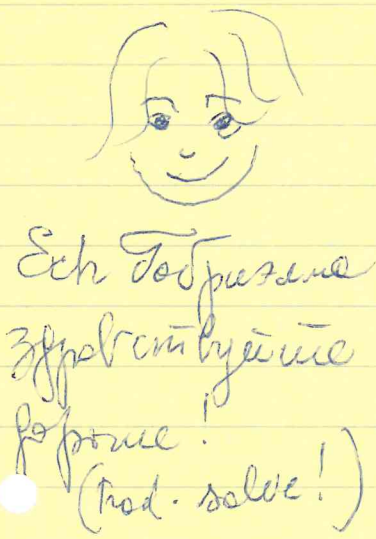 Габриэлла
здравствуйте
дорогие!
(trad. salve!)